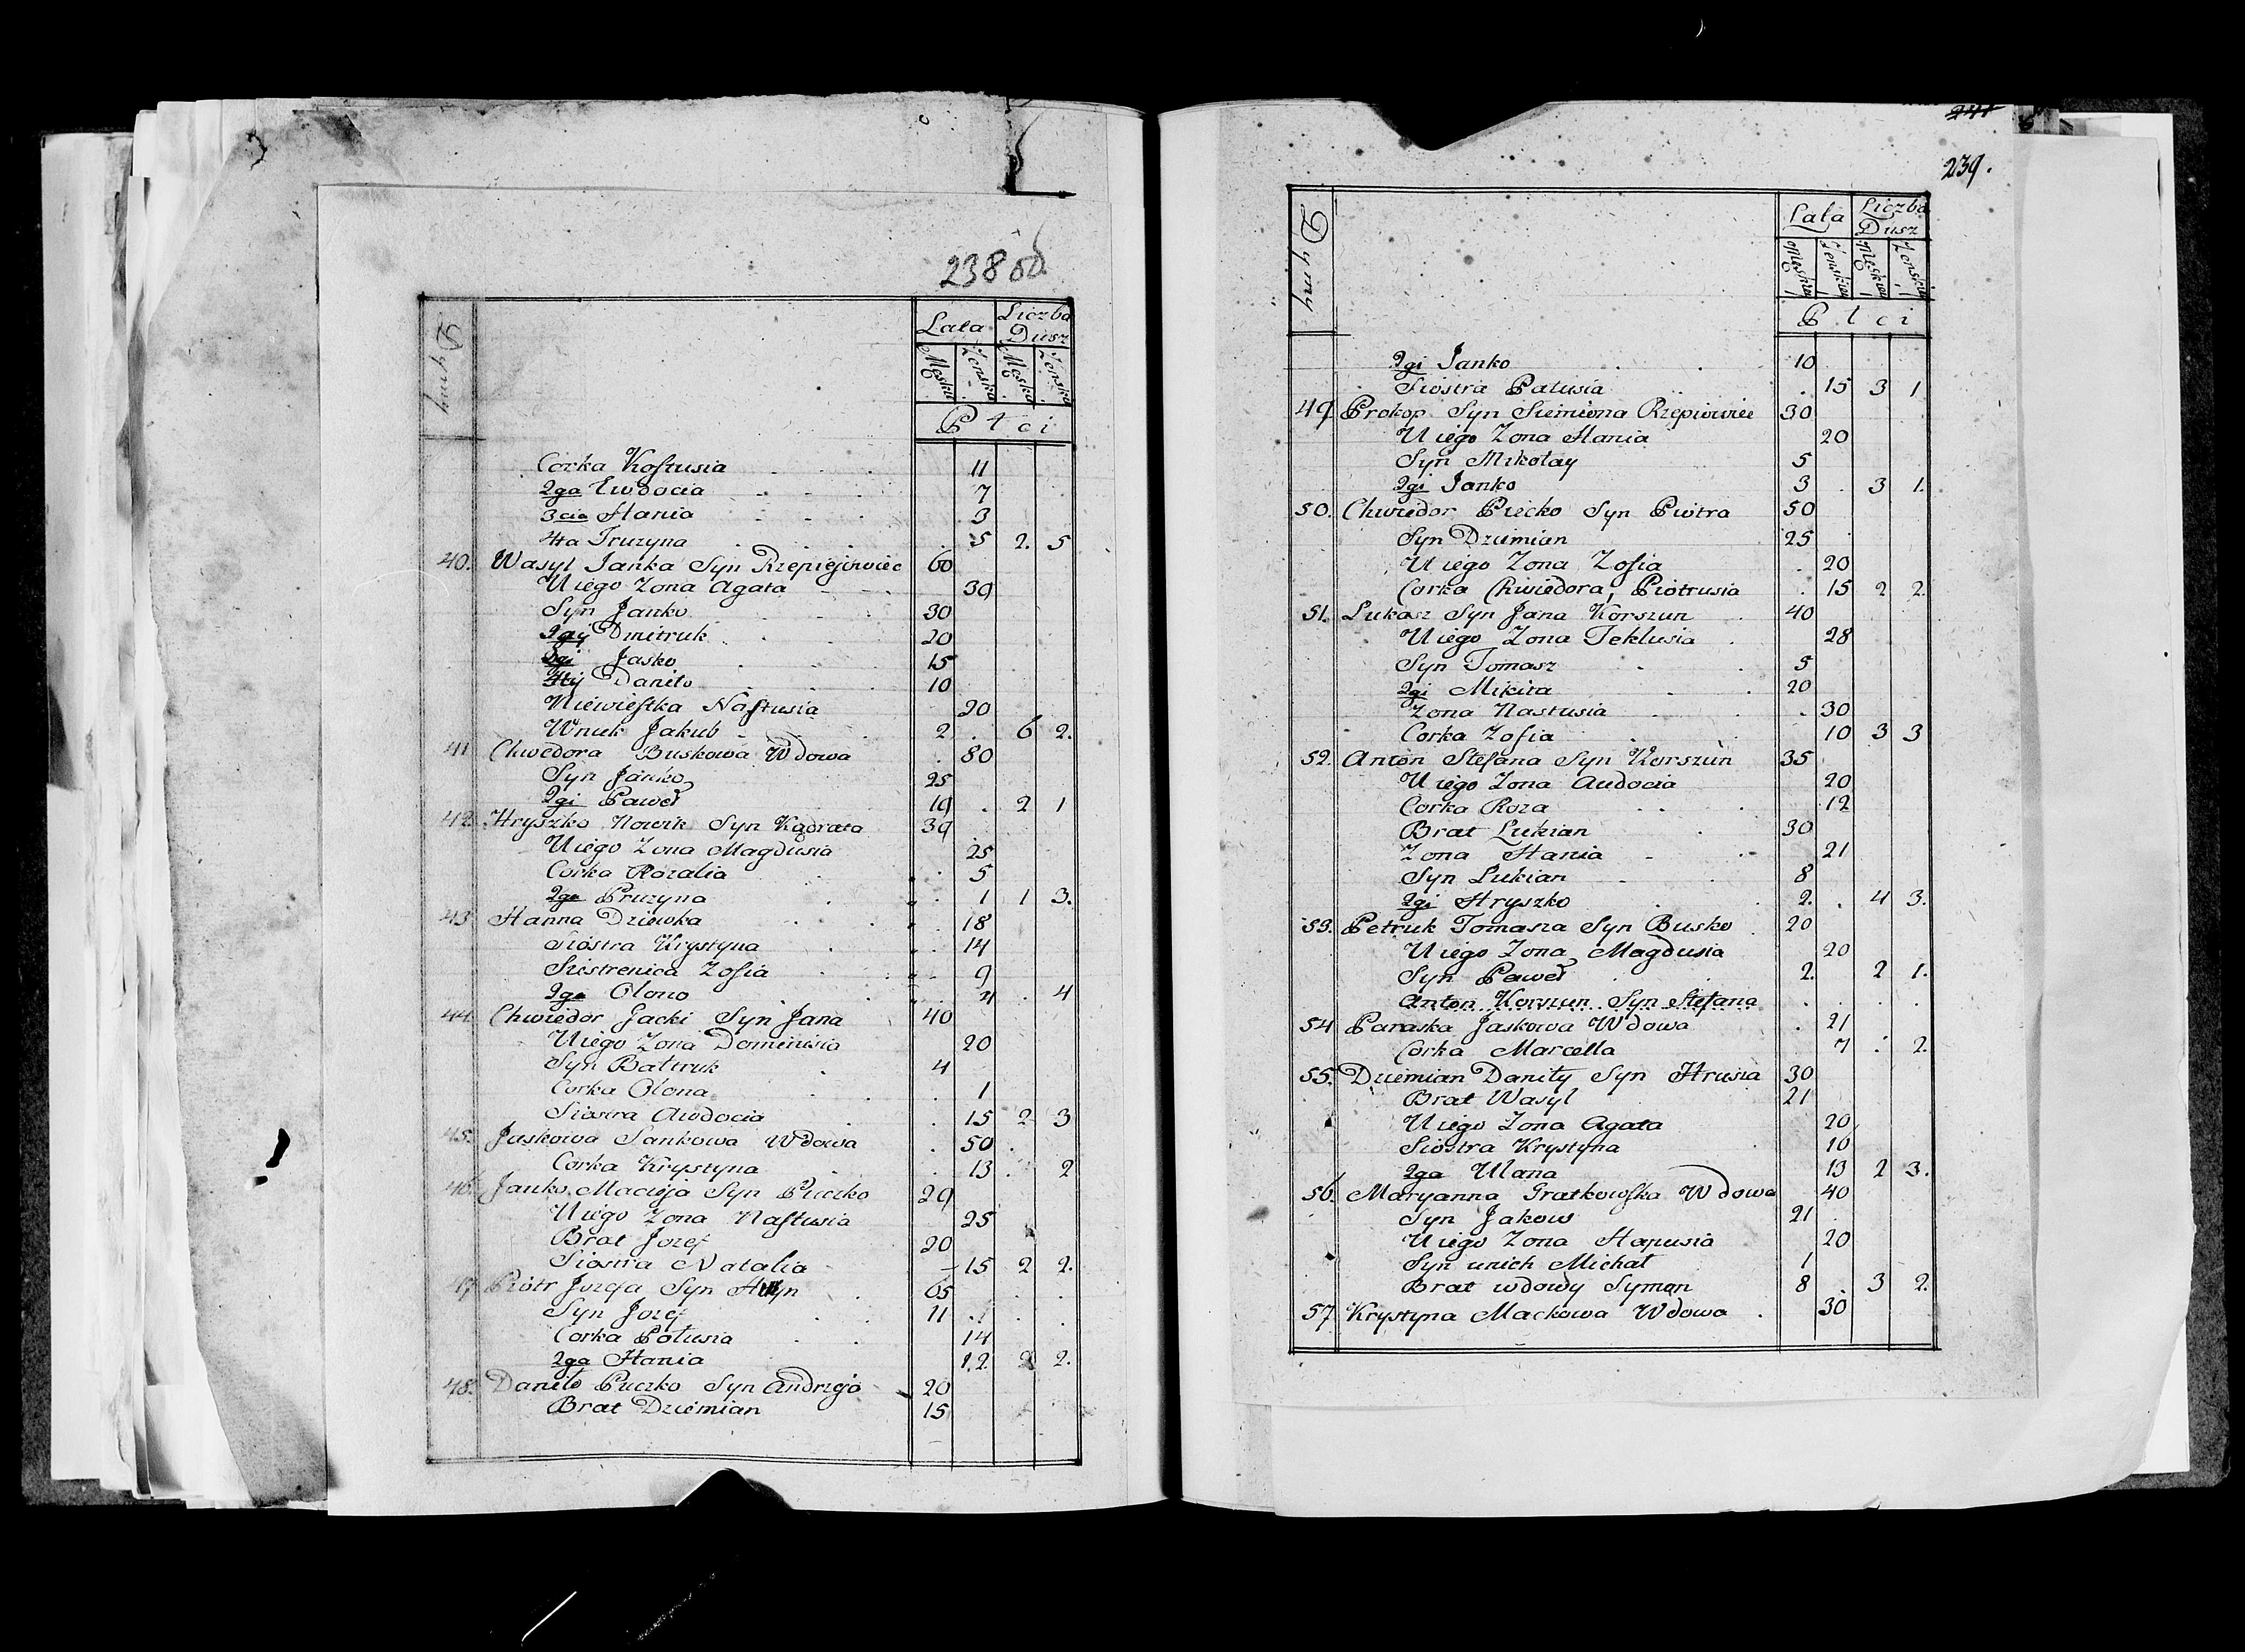 238 od.
Dymy
Lata Liczba Dusz
Męska Zenska Męska Zenska
Płci
Corka Kostusia 11
2ga Ewdocia 7
3cia Hania 3
4ta Truzyna 5 2. 5
40. Wasyl Janka Syn Rzepiejewiec 60
U iego Zona Agata 39
Syn Janko 30
2gi Dmitruk 20
3gi Jasko 15
4ty Daniło 10
Niewiestka Nastusia 20
Wnuk Jakub 2 6 2.
41 Chwedora Buskowa Wdowa 80
Syn Janko 25
2gi Paweł 19 2 1
42. Hryszko Nowik Syn Kądrata 39
U iego Zona Magdusia 25
Corka Rozalia 5
2ga Pruzyna 1 1 3.
43 Hanna Dziewka 18
Siostra Krystyna 14
Siestrenica Zofia 9
2ga Olono 4 4
44. Chwiedor Jacki Syn Jana 40
U iego Zona Dominisia 20
Syn Bałtruk 4
Corka Olona 1
Siostra Awdocia 15 2 3
45. Jaskowa Sankowa Wdowa 50
Corka Krystyna 13 2
46. Janko Macieja Syn Pieczko 29
U iego Zona Nastusia 25
Brat Jozef 20
Siostra Natalia 15 2 2.
47 Piotr Jozefa Syn 65
Syn Jozef 11
Corka Połusia 14
2ga Hania 12 2 2.
48. Daniło Puczko Syn Andrzeja 20
Brat Dziemian 15
241
239.
Dymy
Lata Liczba Dusz
Męska Zenska Męska Zenska
Płci
2gi Janko 10
Siostra Pałusia 15 3 1
49. Prokop Syn Siemiona Rzepiewiec 30
U iego Zona Hania 20
Syn Mikołay 5
2gi Janko 3 3 1.
50. Chwiedor Piecko Syn Piotra 50
Syn Dziemian 25
U iego Zona Zofia 20
Corka Chwiedora, Piotrusia 15 2 2.
51. Lukasz Syn Jana Korszun 40
U iego Zona Teklusia 28
Syn Tomasz 5
2gi Mikita 20
Zona Nastusia 30
Corka Zofia 10 3 3
52. Anton Stefana Syn Korszun 35
U iego Zona Audocia 20
Corka Roza 12
Brat Lukian 30
Zona Hania 21
Syn Lukian 8
2gi Hryszko 2. 4 3.
53. Petruk Tomasza Syn Busko 20
U iego Zona Magdusia 20
Syn Paweł 2. 2 1.
Anton Korszun Syn Stefana
54 Paraska Jaskowa Wdowa 21
Corka Marcella 7 2.
55. Dziemian Daniły Syn Hrusza 30
Brat Wasyl 21
U iego Zona Agata 20
Siostra Krystyna 10
2ga Ulana 13 2 3.
56. Maryanna Gratkowska Wdowa 40
Syn Jakow 21
U iego Zona Hapusia 20
Syn unich Michał 1
Brat wdowy Symon 8 3 2.
57 Krystyna Mackowa Wdowa 30